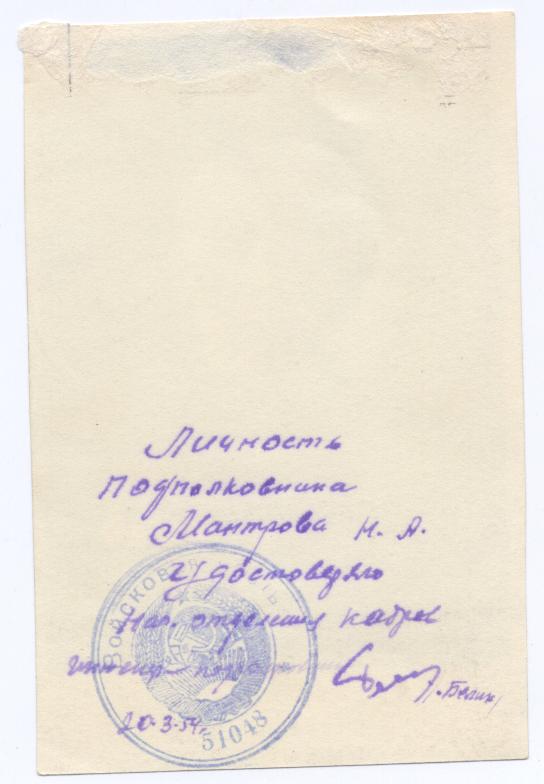 Личность
Подполковника
Мантрова Н. А.
Удостоверяю
Нач. отделения кадров
Инженер
20-3-54г.
ВОЙСКОВАЯ ЧАСТЬ
51048